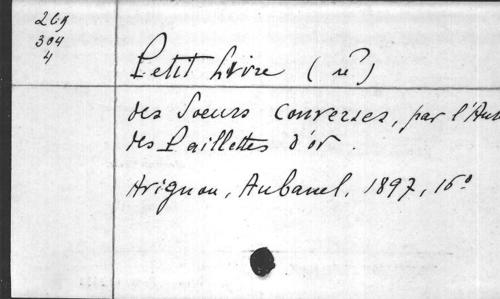 269
304
4
Petit Livre (le)
des Soeurs Converses, par l'Aut
des Paillettes d'or.
Avignon, Aubanel, 1897, 16º